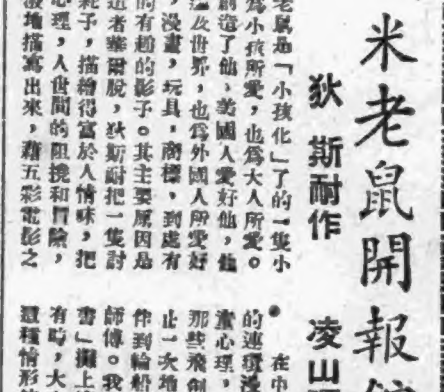 米老鼠開報館
狄斯耐作
凌山
老鼠是「小孩化」了的一隻小
爲小孩所愛,也爲大人所愛。
創造了他,美國人愛好他,他
遍及世界,也爲外國人所愛好
,漫畫,玩具,商標,到處有
的有趣的影子。其主要原因是
造者華爾脫,狄斯耐把一隻討
耗子,描繪得富於人情味,把
心理,人世間的阻撓和冒險,
潑地描寫出來,藉五彩電影之
在中
的連環漫
童心理,
那些飛倒
止一次地
伴到輪船
師傅。我
雲」擱上
有時,大
這種情形